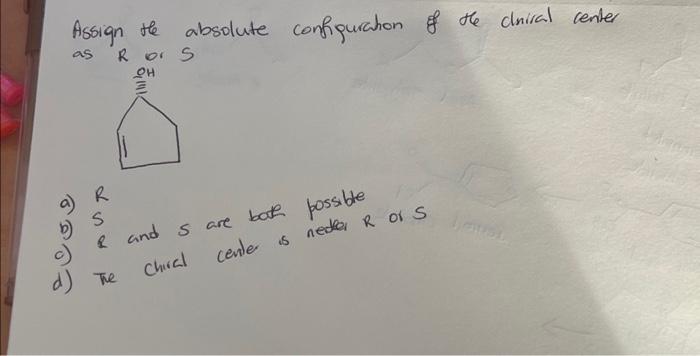 Assign the absolute configuration of the chiral center
as R or S
OH
a) R
b) S
c) R and S are both possible
d) The chiral center is neither R or S